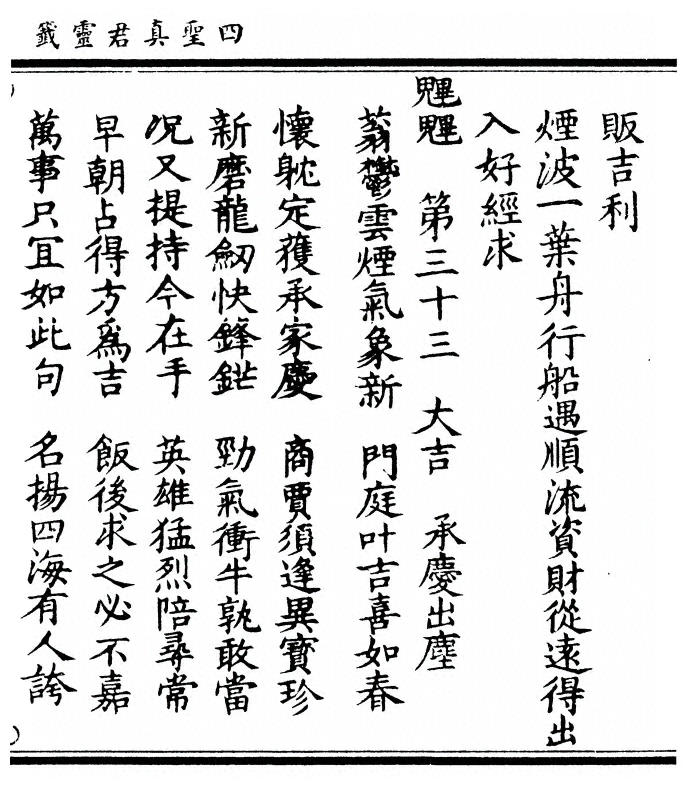 四聖真君靈籤
販吉利
煙波一葉舟行船遇順流資財從遠得出
入好經求
魓魓 第三十三 大吉 承慶出塵
蓊鬱雲煙氣象新 門庭叶吉喜如春
懷躭定獲承家慶 商賈須逢異寶珍
新磨龍劔快鋒鋩 勁氣衝牛孰敢當
况又提持今在手 英雄猛烈陪尋常
早朝占得方爲吉 飯後求之必不嘉
萬事只冝如此句 名揚四海有人誇